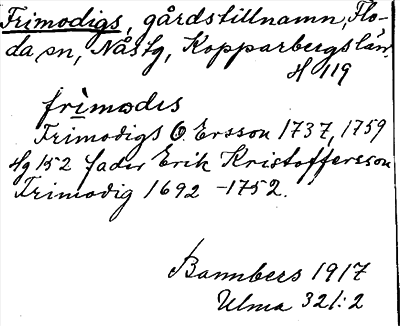 Frimodigs, gårdstillnamn, Flo-
da sn, Nås tg, Kopparbergs län.
H 119
frimodis
Frimodigs O. Ersson 1737, 1759
Hg 152 fader Erik Kristoffersson
Frimodig 1692 -1752.
Bannbers 1917
Ulma 321:2